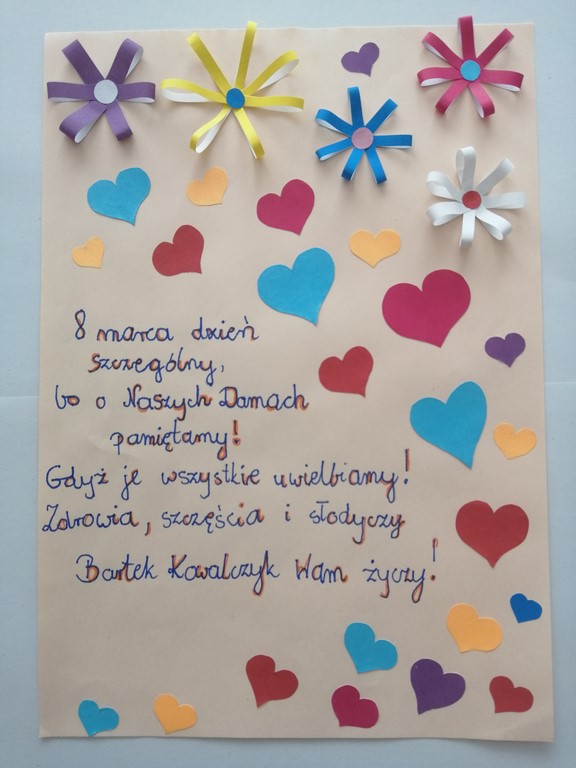 8 marca dzień
szczególny,
bo o Naszych Damach
pamiętamy!
Gdyż je wszystkie uwielbiamy!
Zdrowia, szczęścia i słodyczy
Bartek Kowalczyk Wam życzy!